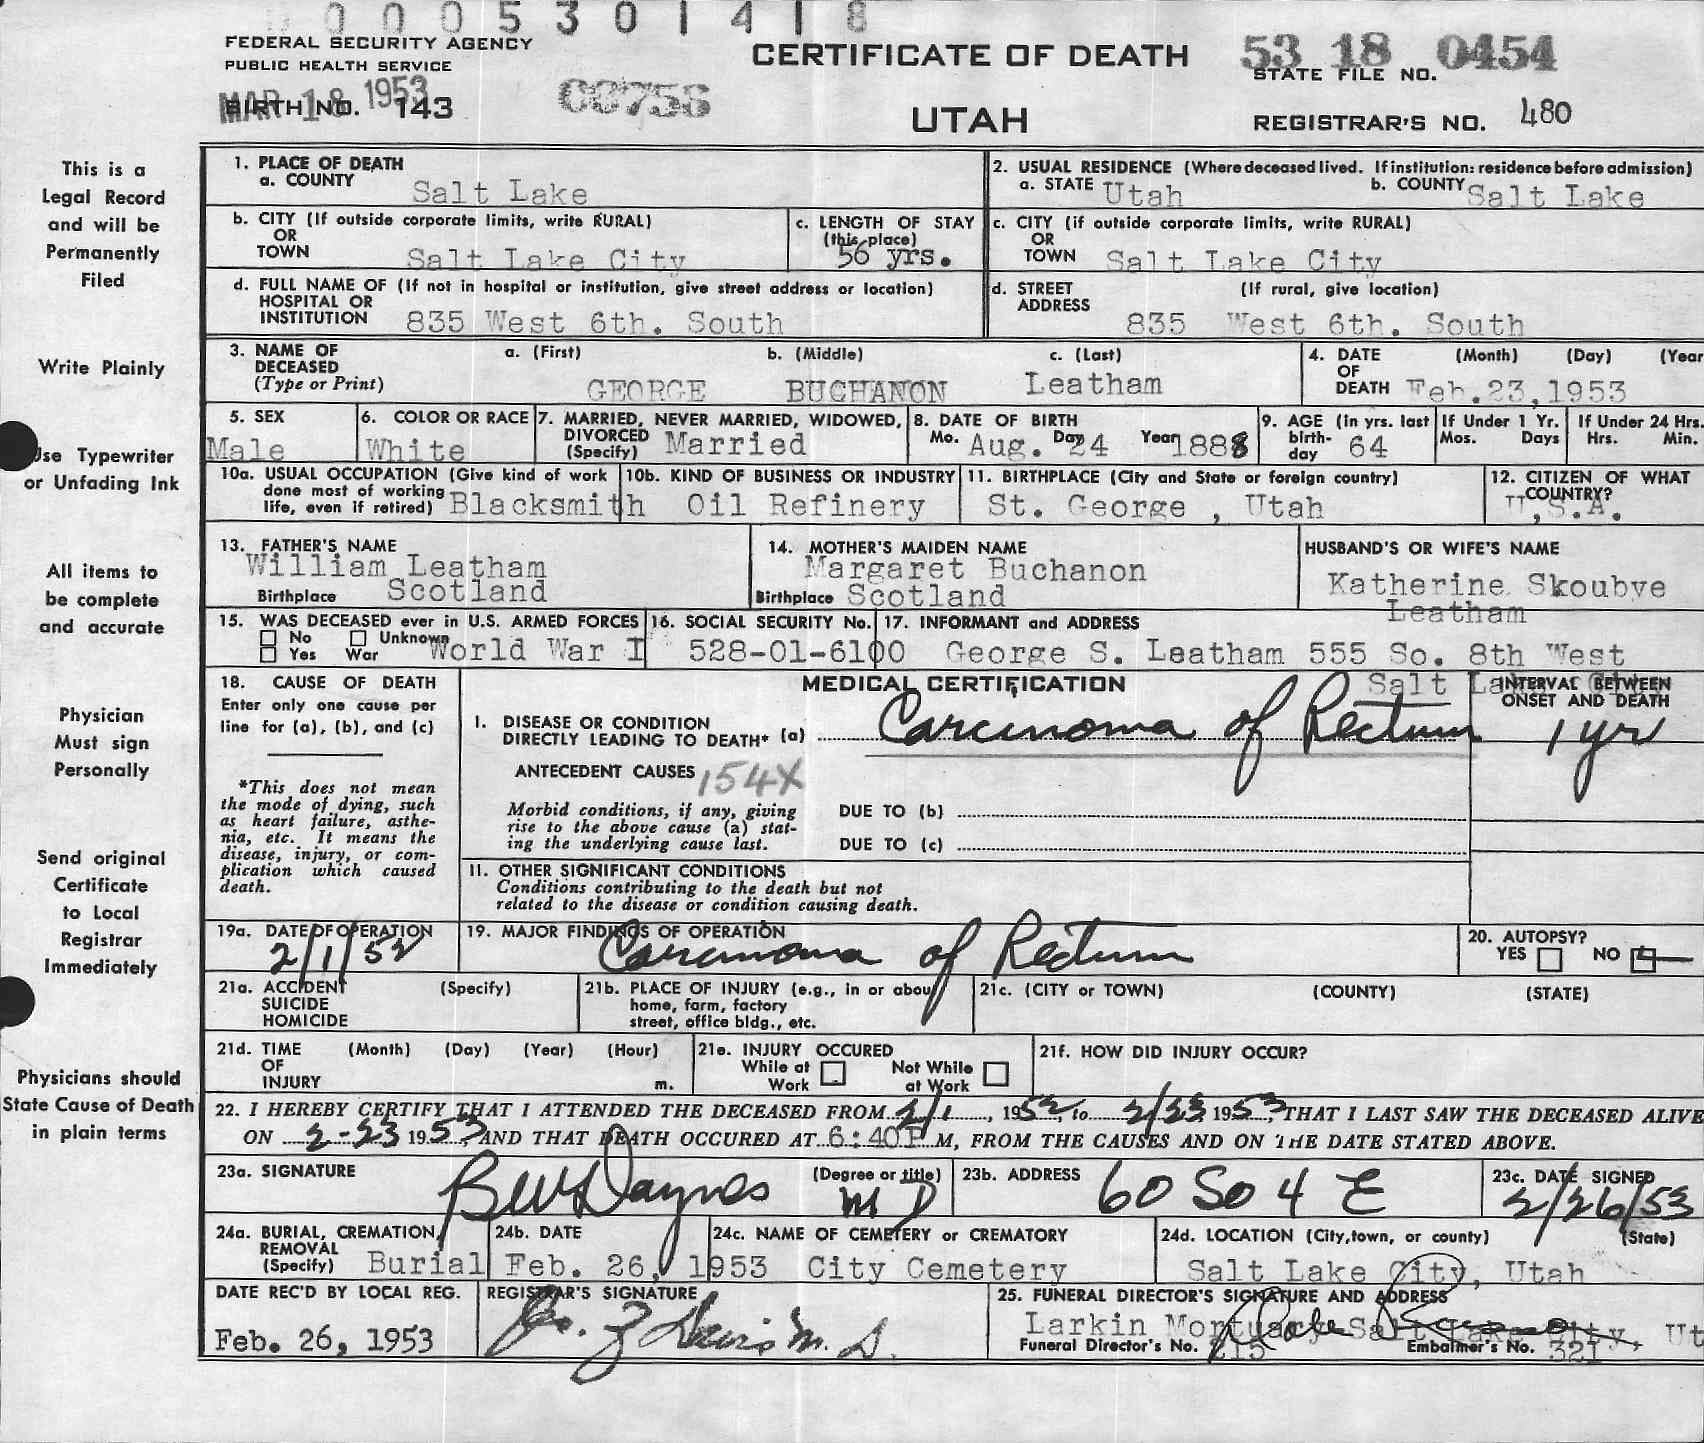 0 0 0 5 3 0 1 4 1 8
FEDERAL SECURITY AGENCY
PUBLIC HEALTH SERVICE
CERTIFICATE OF DEATH
53 18 0454
STATE FILE NO.
MAR 18 1953
BIRTH NO. 143
UTAH
REGISTRAR'S NO. 480
This is a
Legal Record
and will be
Permanently
Filed
Write Plainly
Use Typewriter
or Unfading Ink
All items to
be complete
and accurate
Physician
Must sign
Personally
Send original
Certificate
to Local
Registrar
Immediately
Physicians should
State Cause of Death
in plain terms
1. PLACE OF DEATH
a. COUNTY Salt Lake
2. USUAL RESIDENCE (Where deceased lived. If institution: residence before admission)
a. STATE Utah b. COUNTY Salt Lake
b. CITY (If outside corporate limits, write RURAL)
OR
TOWN Salt Lake City
c. LENGTH OF STAY
(this place)
56 yrs.
c. CITY (if outside corporate limits, write RURAL)
OR
TOWN Salt Lake City
d. FULL NAME OF (If not in hospital or institution, give street address or location)
HOSPITAL OR
INSTITUTION 835 West 6th. South
d. STREET (If rural, give location)
ADDRESS
835 West 6th. South
3. NAME OF a. (First) b. (Middle) c. (Last)
DECEASED
(Type or Print) GEORGE BUCHANON Leatham
4. DATE (Month) (Day) (Year
OF
DEATH Feb.23,1953
5. SEX
Male
6. COLOR OR RACE
White
7. MARRIED, NEVER MARRIED, WIDOWED,
DIVORCED
(Specify) Married
8. DATE OF BIRTH
Mo. Aug. Day 24 Year 1888
9. AGE (in yrs. last
birth-
day 64
If Under 1 Yr.
Mos. Days
If Under 24 Hrs.
Hrs. Min.
10a. USUAL OCCUPATION (Give kind of work
done most of working
life, even if retired) Blacksmith
10b. KIND OF BUSINESS OR INDUSTRY
Oil Refinery
11. BIRTHPLACE (City and State or foreign country)
St. George , Utah
12. CITIZEN OF WHAT
COUNTRY?
U.S.A.
13. FATHER'S NAME
William Leatham
Birthplace Scotland
14. MOTHER'S MAIDEN NAME
Margaret Buchanon
Birthplace Scotland
HUSBAND'S OR WIFE'S NAME
Katherine Skoubye
Leatham
15. WAS DECEASED ever in U.S. ARMED FORCES
No Unknown
Yes War World War I
16. SOCIAL SECURITY No.
528-01-6100
17. INFORMANT and ADDRESS
George S. Leatham 555 So. 8th West
Salt Lake City
18. CAUSE OF DEATH
Enter only one cause per
line for (a), (b), and (c)
*This does not mean
the mode of dying, such
as heart failure, asthe-
nia, etc. It means the
disease, injury, or com-
plication which caused
death.
MEDICAL CERTIFICATION
INTERVAL BETWEEN
ONSET AND DEATH
I. DISEASE OR CONDITION
DIRECTLY LEADING TO DEATH* (a) Carcinoma of Rectum 1 yr
ANTECEDENT CAUSES 154X
Morbid conditions, if any, giving
rise to the above cause (a) stat-
ing the underlying cause last.
DUE TO (b)
DUE TO (c)
11. OTHER SIGNIFICANT CONDITIONS
Conditions contributing to the death but not
related to the disease or condition causing death.
19a. DATE OF OPERATION
2/1/52
19. MAJOR FINDINGS OF OPERATION
Carcinoma of Rectum
20. AUTOPSY?
YES NO
21a. ACCIDENT (Specify)
SUICIDE
HOMICIDE
21b. PLACE OF INJURY (e.g., in or about
home, farm, factory
street, office bldg., etc.
21c. (CITY or TOWN) (COUNTY) (STATE)
21d. TIME (Month) (Day) (Year) (Hour)
OF
INJURY m.
21e. INJURY OCCURED
While at Not While
Work at Work
21f. HOW DID INJURY OCCUR?
22. I HEREBY CERTIFY THAT I ATTENDED THE DECEASED FROM 2/1, 1952, to 2/23 1953, THAT I LAST SAW THE DECEASED ALIVE
ON 2-23 1953, AND THAT DEATH OCCURED AT 6:40 P M, FROM THE CAUSES AND ON THE DATE STATED ABOVE.
23a. SIGNATURE (Degree or title)
BW Daynes MD
23b. ADDRESS 60 So 4 E
23c. DATE SIGNED
2/26/53
24a. BURIAL, CREMATION,
REMOVAL
(Specify) Burial
24b. DATE
Feb. 26, 1953
24c. NAME OF CEMETERY OR CREMATORY
City Cemetery
24d. LOCATION (City,town, or county) (State)
Salt Lake City, Utah
DATE REC'D BY LOCAL REG.
Feb. 26, 1953
REGISTRAR'S SIGNATURE
Davis M.D.
25. FUNERAL DIRECTOR'S SIGNATURE AND ADDRESS
Larkin Mortuary Salt Lake City, Ut
Funeral Director's No. 215 Embalmer's No. 321